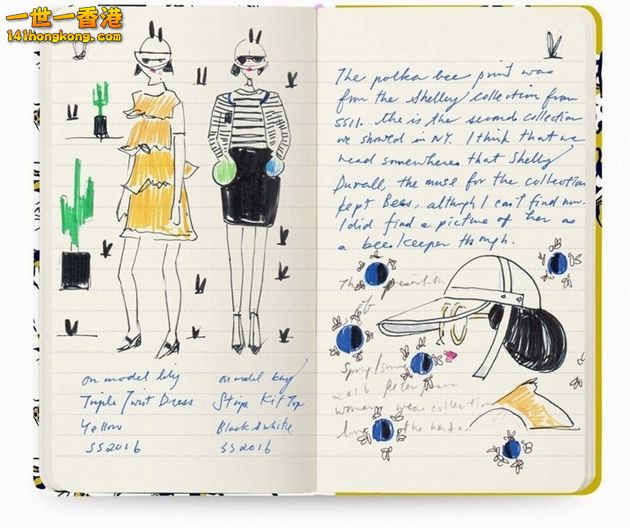 一世一香港
141hongkong.com
The polka bee print was
from the Shelley collection from
SS11. this is the second collection
we showed in NY. I think that we
read somewhere that Shelly
Duvall, the muse for the collection
kept Bees, although I can't find now.
I did find a picture of her as
a bee keeper though.
The
of
Spring/Summer
2016 Peter
women's wear collection
the
on model lily
Triple Twist Dress
Yellow
SS2016
on model Kay
Stripe Kit Top
Black & white
SS2016